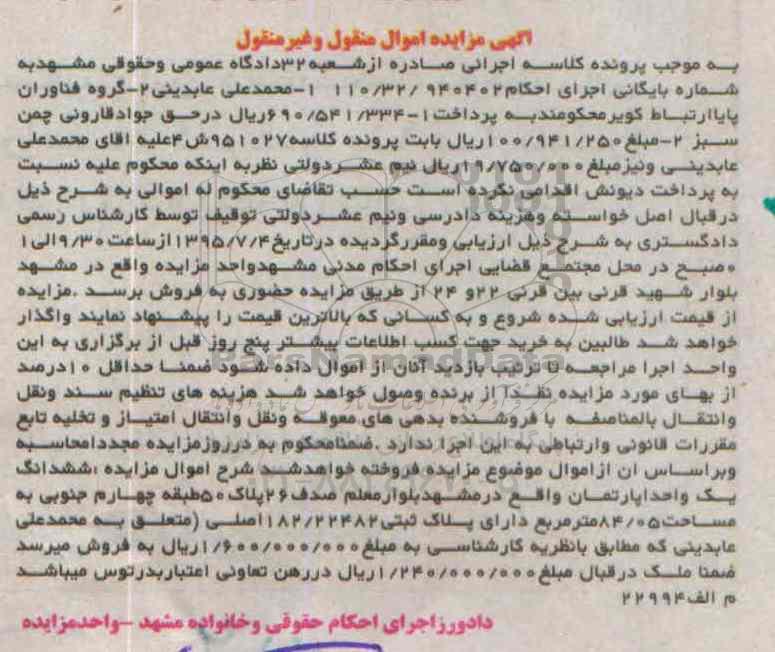 آگهی مزایده اموال منقول وغیرمنقول
به موجب پرونده کلاسه اجرائی صادره ازشعبه۳۲دادگاه عمومی وحقوقی مشهدبه
شماره بایگانی اجرای احکام۹۴۰۴۰۲ /۱۱۰/۳۲ ۱-محمدعلی عابدینی۲-گروه فناوران
پایاارتباط کویرمحکومندبه پرداخت۱-۶۹۰/۵۴۱/۳۳۴ریال درحق جوادقارونی چمن
سبز ۲-مبلغ۱۰۰/۹۴۱/۲۵۰ریال بابت پرونده کلاسه۹۵۱۰۲۷ش۴علیه اقای محمدعلی
عابدینی ونیزمبلغ۱۹/۷۵۰/۰۰۰ریال نیم عشردولتی نظربه اینکه محکوم علیه نسبت
به پرداخت دیونش اقدامی نکرده است حسب تقاضای محکوم له اموالی به شرح ذیل
درقبال اصل خواسته وهزینه دادرسی ونیم عشردولتی توقیف توسط کارشناس رسمی
دادگستری به شرح ذیل ارزیابی ومقررگردیده درتاریخ۱۳۹۵/۷/۴ازساعت۹/۳۰الی۱
۰صبح در محل مجتمع قضایی اجرای احکام مدنی مشهدواحد مزایده واقع در مشهد
بلوار شهید قرنی بین قرنی ۲۲و ۲۴ از طریق مزایده حضوری به فروش برسد .مزایده
از قیمت ارزیابی شده شروع و به کسانی که بالاترین قیمت را پیشنهاد نمایند واگذار
خواهد شد طالبین به خرید جهت کسب اطلاعات بیشتر پنج روز قبل از برگزاری به این
واحد اجرا مراجعه تا ترتیب بازدید آنان از اموال داده شود ضمنا حداقل ۱۰درصد
از بهای مورد مزایده نقدا از برنده وصول خواهد شد هزینه های تنظیم سند ونقل
وانتقال بالمناصفه با فروشنده بدهی های معوقه ونقل وانتقال امتیاز و تخلیه تابع
مقررات قانونی وارتباطی به این اجرا ندارد .ضمنامحکوم به درروزمزایده مجددامحاسبه
وبراساس ان ازاموال موضوع مزایده فروخته خواهدشد شرح اموال مزایده :ششدانگ
یک واحداپارتمان واقع درمشهدبلوارمعلم صدف۲۶پلاک۵۰طبقه چهارم جنوبی به
مساحت۸۴/۰۵مترمربع دارای پلاک ثبتی۱۸۲/۲۲۴۸۲اصلی (متعلق به محمدعلی
عابدینی که مطابق بانظریه کارشناسی به مبلغ۱/۶۰۰/۰۰۰/۰۰۰ریال به فروش میرسد
ضمنا ملک درقبال مبلغ۱/۲۴۰/۰۰۰/۰۰۰ریال دررهن تعاونی اعتباربدرتوس میباشد
م الف۲۲۹۹۴
دادورزاجرای احکام حقوقی وخانواده مشهد -واحدمزایده
ParsNamadData